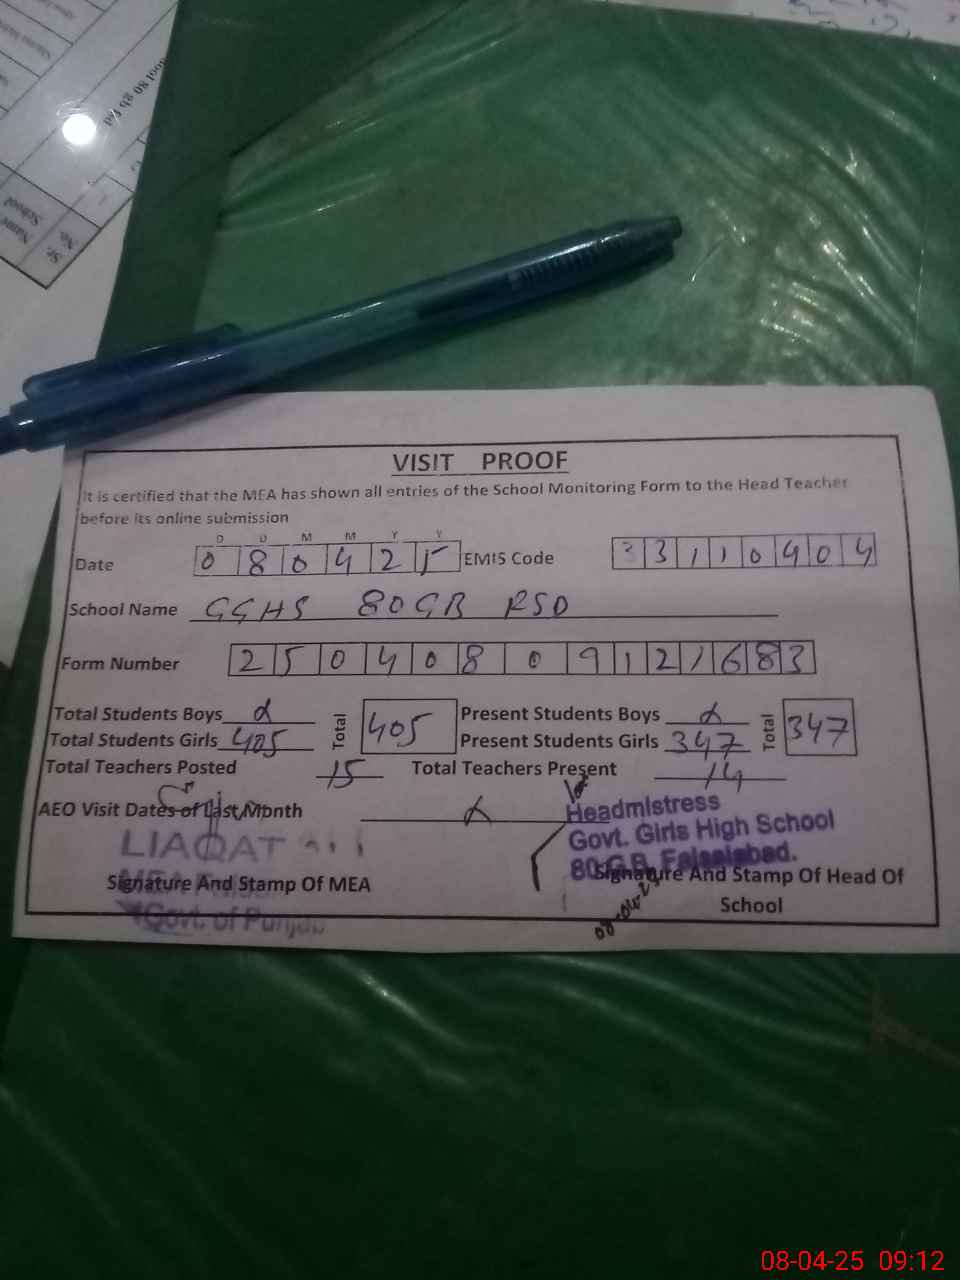 ool 80 gb Rd
Sr.
No.
Name
School
VISIT PROOF
It is certified that the MEA has shown all entries of the School Monitoring Form to the Head Teacher
before its online submission
D D M M Y Y
Date 0 8 0 4 2 5 EMIS Code 3 3 1 1 0 4 0 4
School Name GGHS 80GB RSD
Form Number 2 5 0 4 0 8 0 9 1 2 1 6 8 3
Total Students Boys Total 405 Present Students Boys Total 347
Total Students Girls 405 Present Students Girls 347
Total Teachers Posted 15 Total Teachers Present 14
AEO Visit Dates of Last Month
Headmistress
Govt. Girls High School
80 G.B, Faisalabad.
LIAQAT
Signature And Stamp Of MEA
MEA
Govt. of Punjab
Signature And Stamp Of Head Of
School
08-04-25 09:12